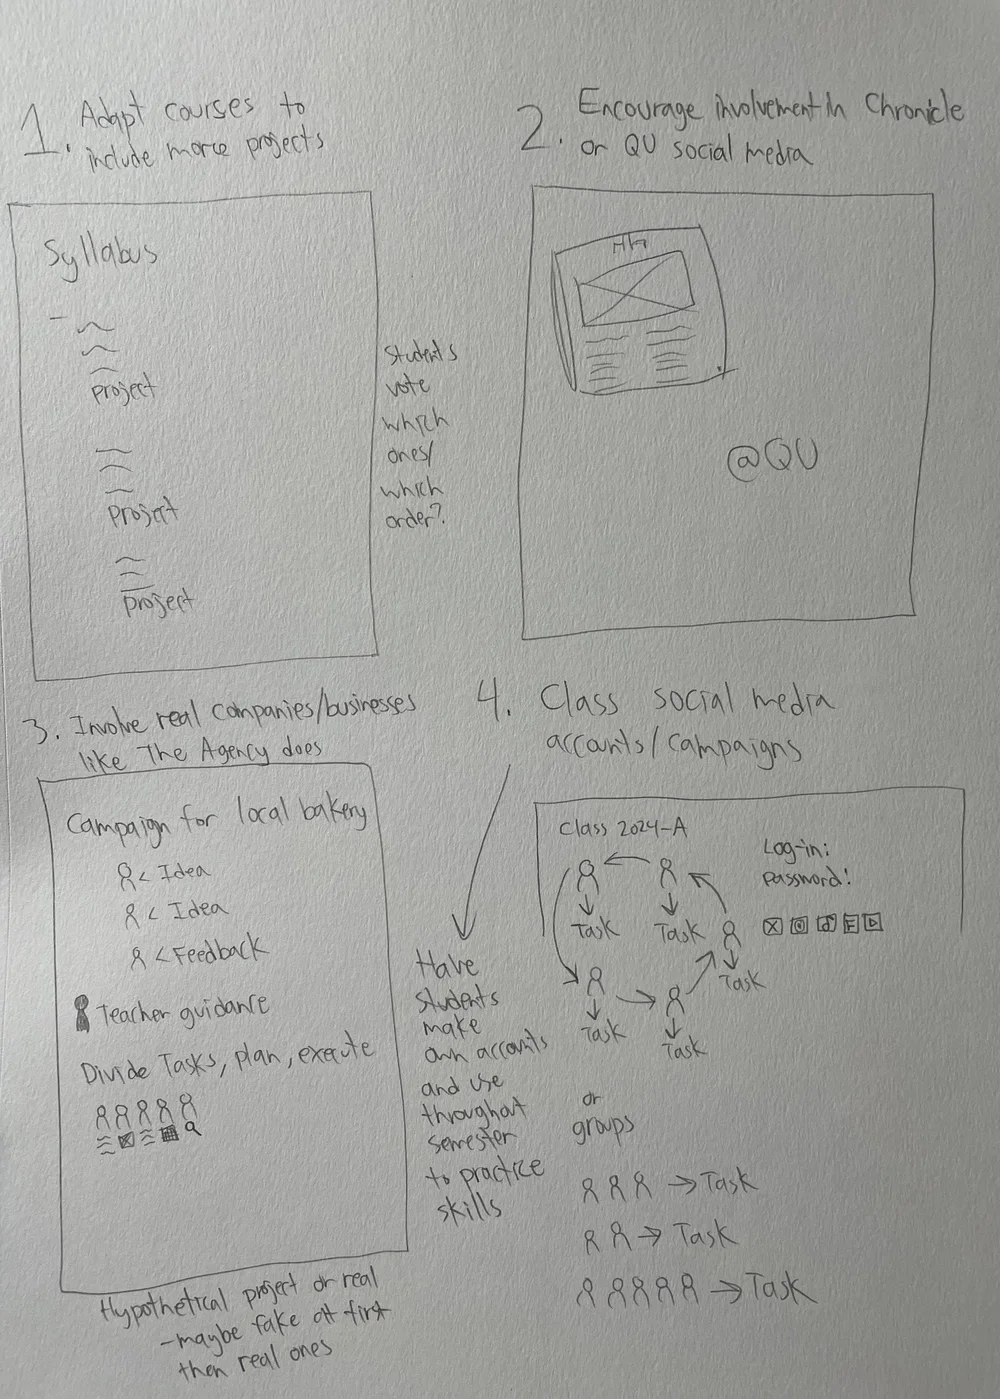 1. Adapt courses to
include more projects
Syllabus
project
project
project
students
vote
which
ones/
which
order?
2. Encourage involvement in Chronicle
or QU social media
@QU
3. Involve real companies/businesses
like The Agency does
Campaign for local bakery
< Idea
< Idea
< Feedback
Teacher guidance
Divide Tasks, plan, execute
Hypothetical project or real
- maybe fake at first
then real ones
4. Class social media
accounts/campaigns
Have
students
make
own accounts
and use
throughout
semester
to practice
skills
Class 2024-A
Log-in:
Password:
Task
Task
Task
Task
Task
or
groups
→ Task
→ Task
→ Task